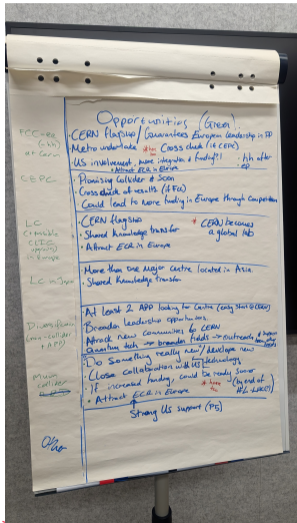 Opportunities (Green)
FCC-ee
(-hh)
at Cern
• CERN flagship / Guarantees European Leadership in PP
• Metro undertake
Cross check (if CEPC)
• US involvement, more integration & funding?!
• hh after
ee
• Attract ECR in Europe
CEPC
• Promising Collider & Soon
• Cross check of results (if FCC)
• Could lead to more funding in Europe through Competition
LC
CLIC
in Europe
• CERN flagship
• Shared knowledge transfer
• Attract ECR in Europe
* CERN becomes
a global lab
LC in Japan
• More than one major centre located in Asia.
• Shared knowledge transfer
Diversified
(non-collider
+ APP)
• At least 2 APP looking for Centre (easy start @ CERN)
• Broaden leadership opportunities.
• Attract new communities to CERN
• Quantum tech → broaden fields → outreach
Muon
collider
• Do something really new / develope new
technology
• Close collaboration with US
• If increased funding, could be ready sooner
(by end of
HL-LHC?)
• Attract ECR in Europe
Strong US support (P5)